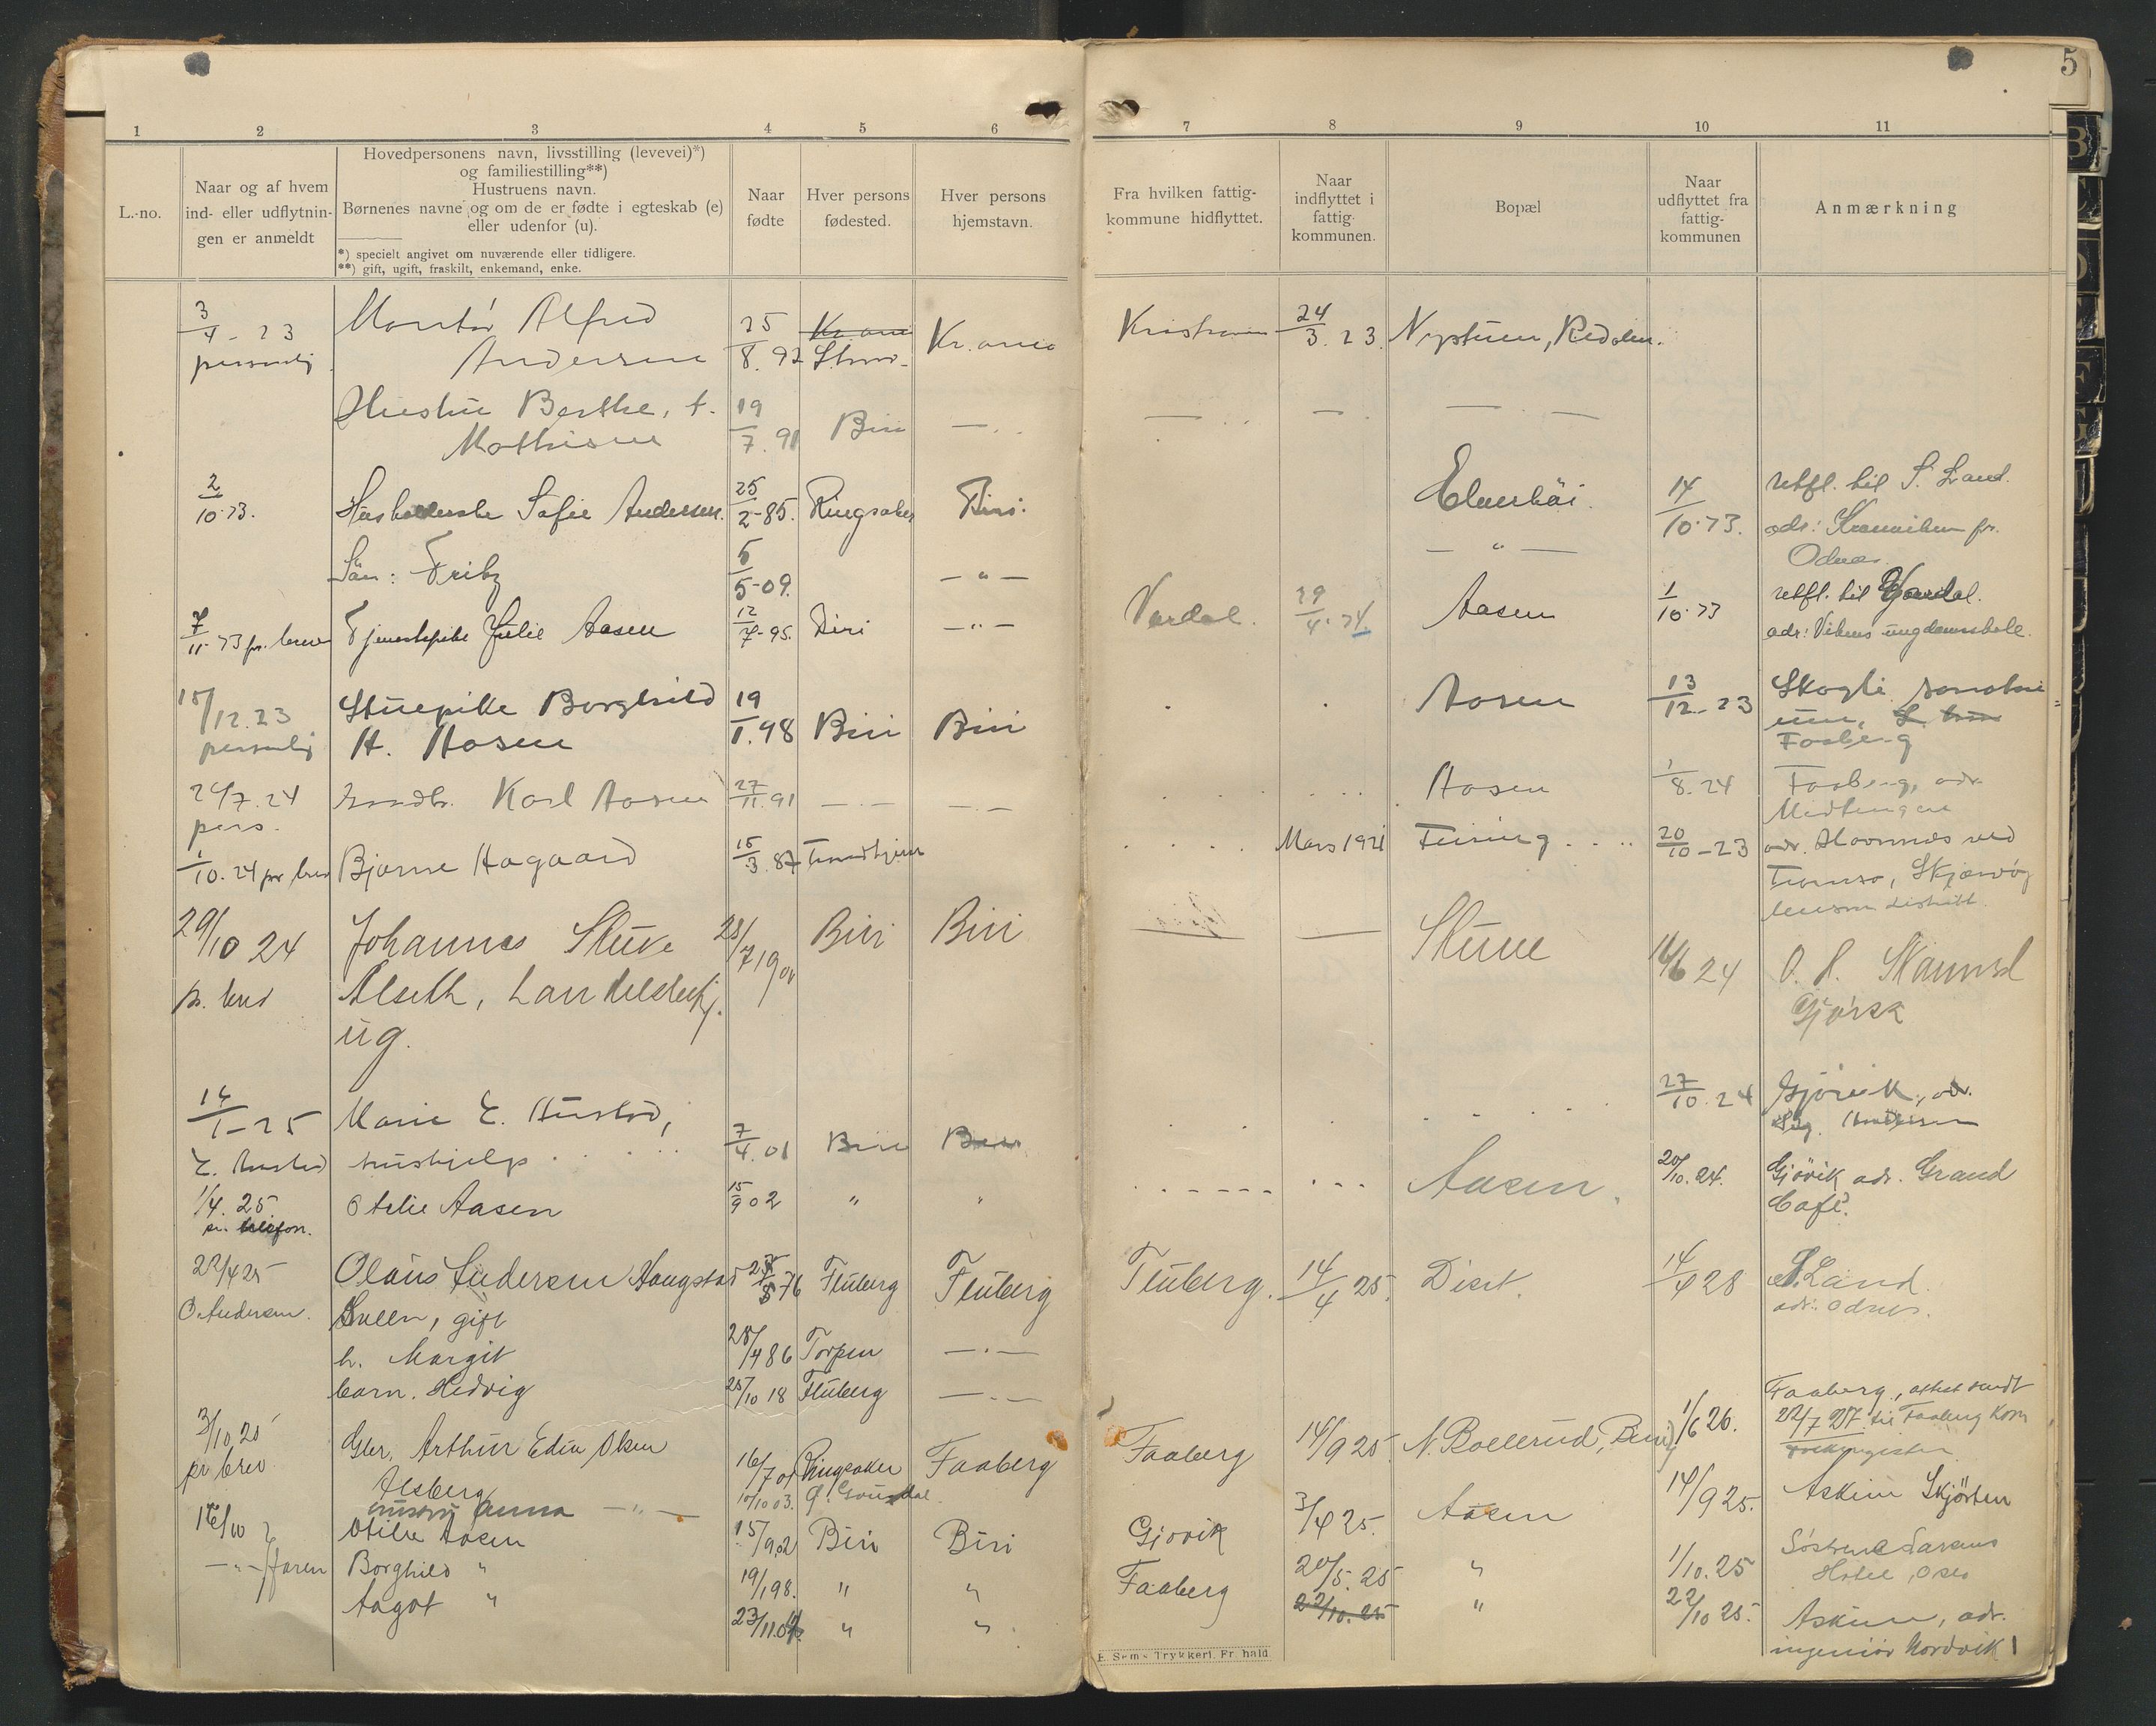 5
1 2 3 4 5 6 7 8 9 10 11
L.-no.
Naar og af hvem
ind- eller udflytnin-
gen er anmeldt
Hovedpersonens navn, livsstilling (levevei)*)
og familiestilling**)
Hustruens navn.
Børnenes navne og om de er fødte i egteskab (e)
eller udenfor (u).
*) specielt angivet om nuværende eller tidligere.
**) gift, ugift, fraskilt, enkemand, enke.
Naar
fødte
Hver persons
fødested.
Hver persons
hjemstavn.
Fra hvilken fattig-
kommune hidflyttet.
Naar
indflyttet i
fattig-
kommunen.
Bopæl
Naar
udflyttet fra
fattig-
kommunen
Anmærkning
3/4 - 23 Montør Alfred 25/8. 92 Kr.ania Kr.ania 24/3. 23.
personlig Andersen
Hustru Berthe, f. 19/7. 91 Biri — . .
Mathisen
2/10. 23. Sofie Andersen. 25/2 - 85. Ringsaker Biri. 14/10. 23. utfl. til S. Land.
adr:
Odnes.
Søn: Fritz 5/5 - 09. — " — — " —
7/11 - 23 pr. brev Tjenestepike Julie Aasen 12/7 - 95. Biri — " — Vardal. 29/4. 24 Aasen 1/10. 23 utfl. til Vardal.
adr: Vikens ungdomsskole.
15/12. 23 Stuepike Borghild 19/1. 98 Biri Biri Aasen 13/12 - 23 Skogli sanatori
personlig H. Aasen um,
Faaberg
24/7. 24 Karl Aasen 27/11. 91 — . — — . — Aasen 1/8. 24 Faaberg, adr.
pers.
1/10. 24 pr brev Bjarne Hagaard 15/3. 87 Trondhjem Mars 1921 20/10 - 23 adr. Havnnes ved
Tromsø, Skjærvøy
lensm. distrikt.
29/10 24 Johannes Stuve 28/7 1901 Biri Biri Stuve 24
pr. brev Alseth,
ug.
14/1 - 25 Marie E. 7/4. 01 Biri Biri 27/10. 24 Gjøvik, adr.
hushjelp
1/4. 25 Otilie Aasen 15/9 02 " " Aasen. 20/10. 24. Gjøvik adr. Grand
pr. telefon. Café.
22/4 25 Olaus Andersen Haugstad 76 Fluberg Fluberg Fluberg. 14/4 25. Diset. 14/4 28 S. Land.
O. Andersen. gift adr: Odnes.
h. Margit 28/4 86 Torpen — . —
barn. Hedvig 25/10 18 Fluberg — . —
3/10. 25 Gbr. Arthur Edin Oken 16/7 01 Ringsaker Faaberg Faaberg 14/9 25. 1/6 26. Faaberg, attest sendt
pr brev Alsberg 22/7 27. til Faaberg kom
hustru Anna — " — 10/10 03. Ø. Gausdal.
16/10 Otilie Aasen 15/9.02 Biri Biri Gjøvik 3/4 25. Aasen 14/9 25. Askim Skjørten
— " — faren Borghild " 19/1 98. " " Faaberg 20/5. 25 " 1/10. 25 Søstrene Larsens
Hotel, Oslo
Aagot " 23/11.04. " " 22/10. 25 " 22/10 25. Askim, adr.
ingeniør Nordvik
E. Sems Trykkeri, Fr.hald.